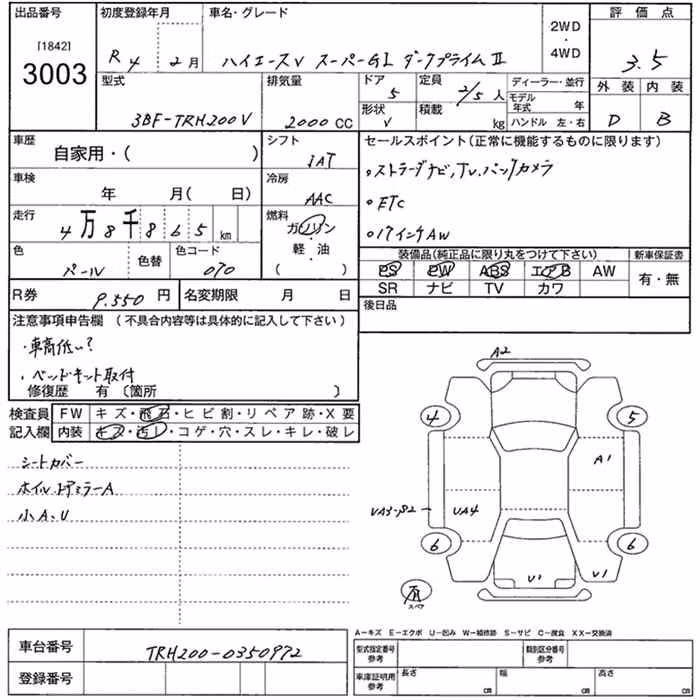 出品番号 初度登録年月 車名・グレード 2WD・4WD 評価点
[1842]
3003 R4 2月 ハイエースV スーパーGL ダークプライムⅡ 3.5
型式 排気量 ドア 5 定員 2/5人 ディーラー・並行 外装 内装
3BF-TRH200V 2000CC 形状 V 積載 kg モデル年式 年 D B
ハンドル 左・右
車歴 シフト セールスポイント(正常に機能するものに限ります)
自家用・( ) IAT 。ストラーダナビ,TV.バックカメラ
車検 冷房 。ETC
年 月( 日) AAC 。17インチAW
走行 4万8千865km 燃料 ガソリン・軽油 ( )
色 パール 色替 色コード 070
装備品(純正品に限り丸をつけて下さい) 新車保証書
PS PW ABS エアB AW 有・無
SR ナビ TV カワ
R券 9.550円 名変期限 月 日 後日品
注意事項申告欄 (不具合内容等は具体的に記入して下さい)
・車高低い?
・ベッドキット取付
修復歴 有〔箇所 〕
検査員 FW キズ・飛石・ヒビ割・リペア跡・X要
記入欄 内装 キズ・汚レ・コゲ・穴・スレ・キレ・破レ
シートカバー
ホイル.ドアミラーA
小A.U
A2
4 5
A1
UA3-P2 UA4
6 6
U1 U1
スペア
A-キズ E-エクボ U-凹み W-補修跡 S-サビ C-腐食 XX-交換済
車台番号 TRH200-0350972 型式指定番号 参考 類別区分番号 参考
登録番号 車庫証明用 参考 長さ cm 幅 cm 高さ cm